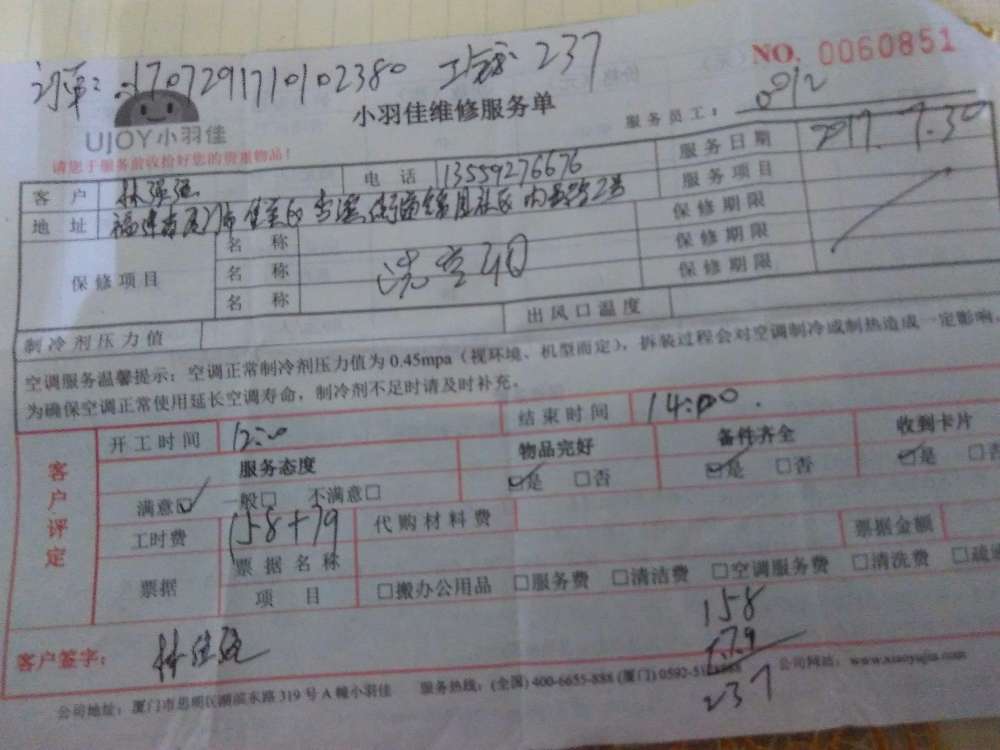 订单: 1707291710102380 237
NO. 0060851
UJOY小羽佳
小羽佳维修服务单
服务员工: 0012
请您于服务前收拾好您的贵重物品!
客户 电话 13559276676 服务日期 2017.7.30
地址 服务项目
保修项目
名称 保修期限
名称 保修期限
名称 保修期限
制冷剂压力值 出风口温度
空调服务温馨提示: 空调正常制冷剂压力值为 0.45mpa (视环境、机型而定), 拆装过程会对空调制冷或制热造成一定影响
为确保空调正常使用延长空调寿命, 制冷剂不足时请及时补充。
客户评定
开工时间 12:00 结束时间 14:00.
服务态度 物品完好 备件齐全 收到卡片
满意☑ 一般□ 不满意□ ☑是 □否 ☑是 □否 ☑是 □否
工时费 158+79 代购材料费
票据 票据名称 票据金额
项目 □搬办公用品 □服务费 □清洁费 □空调服务费 □清洗费
158
79
237
客户签字:
公司地址: 厦门市思明区湖滨东路 319 号 A 幢小羽佳 服务热线: (全国) 400-6655-888 (厦门) 0592- 公司网站: www.xiaoyujia.com